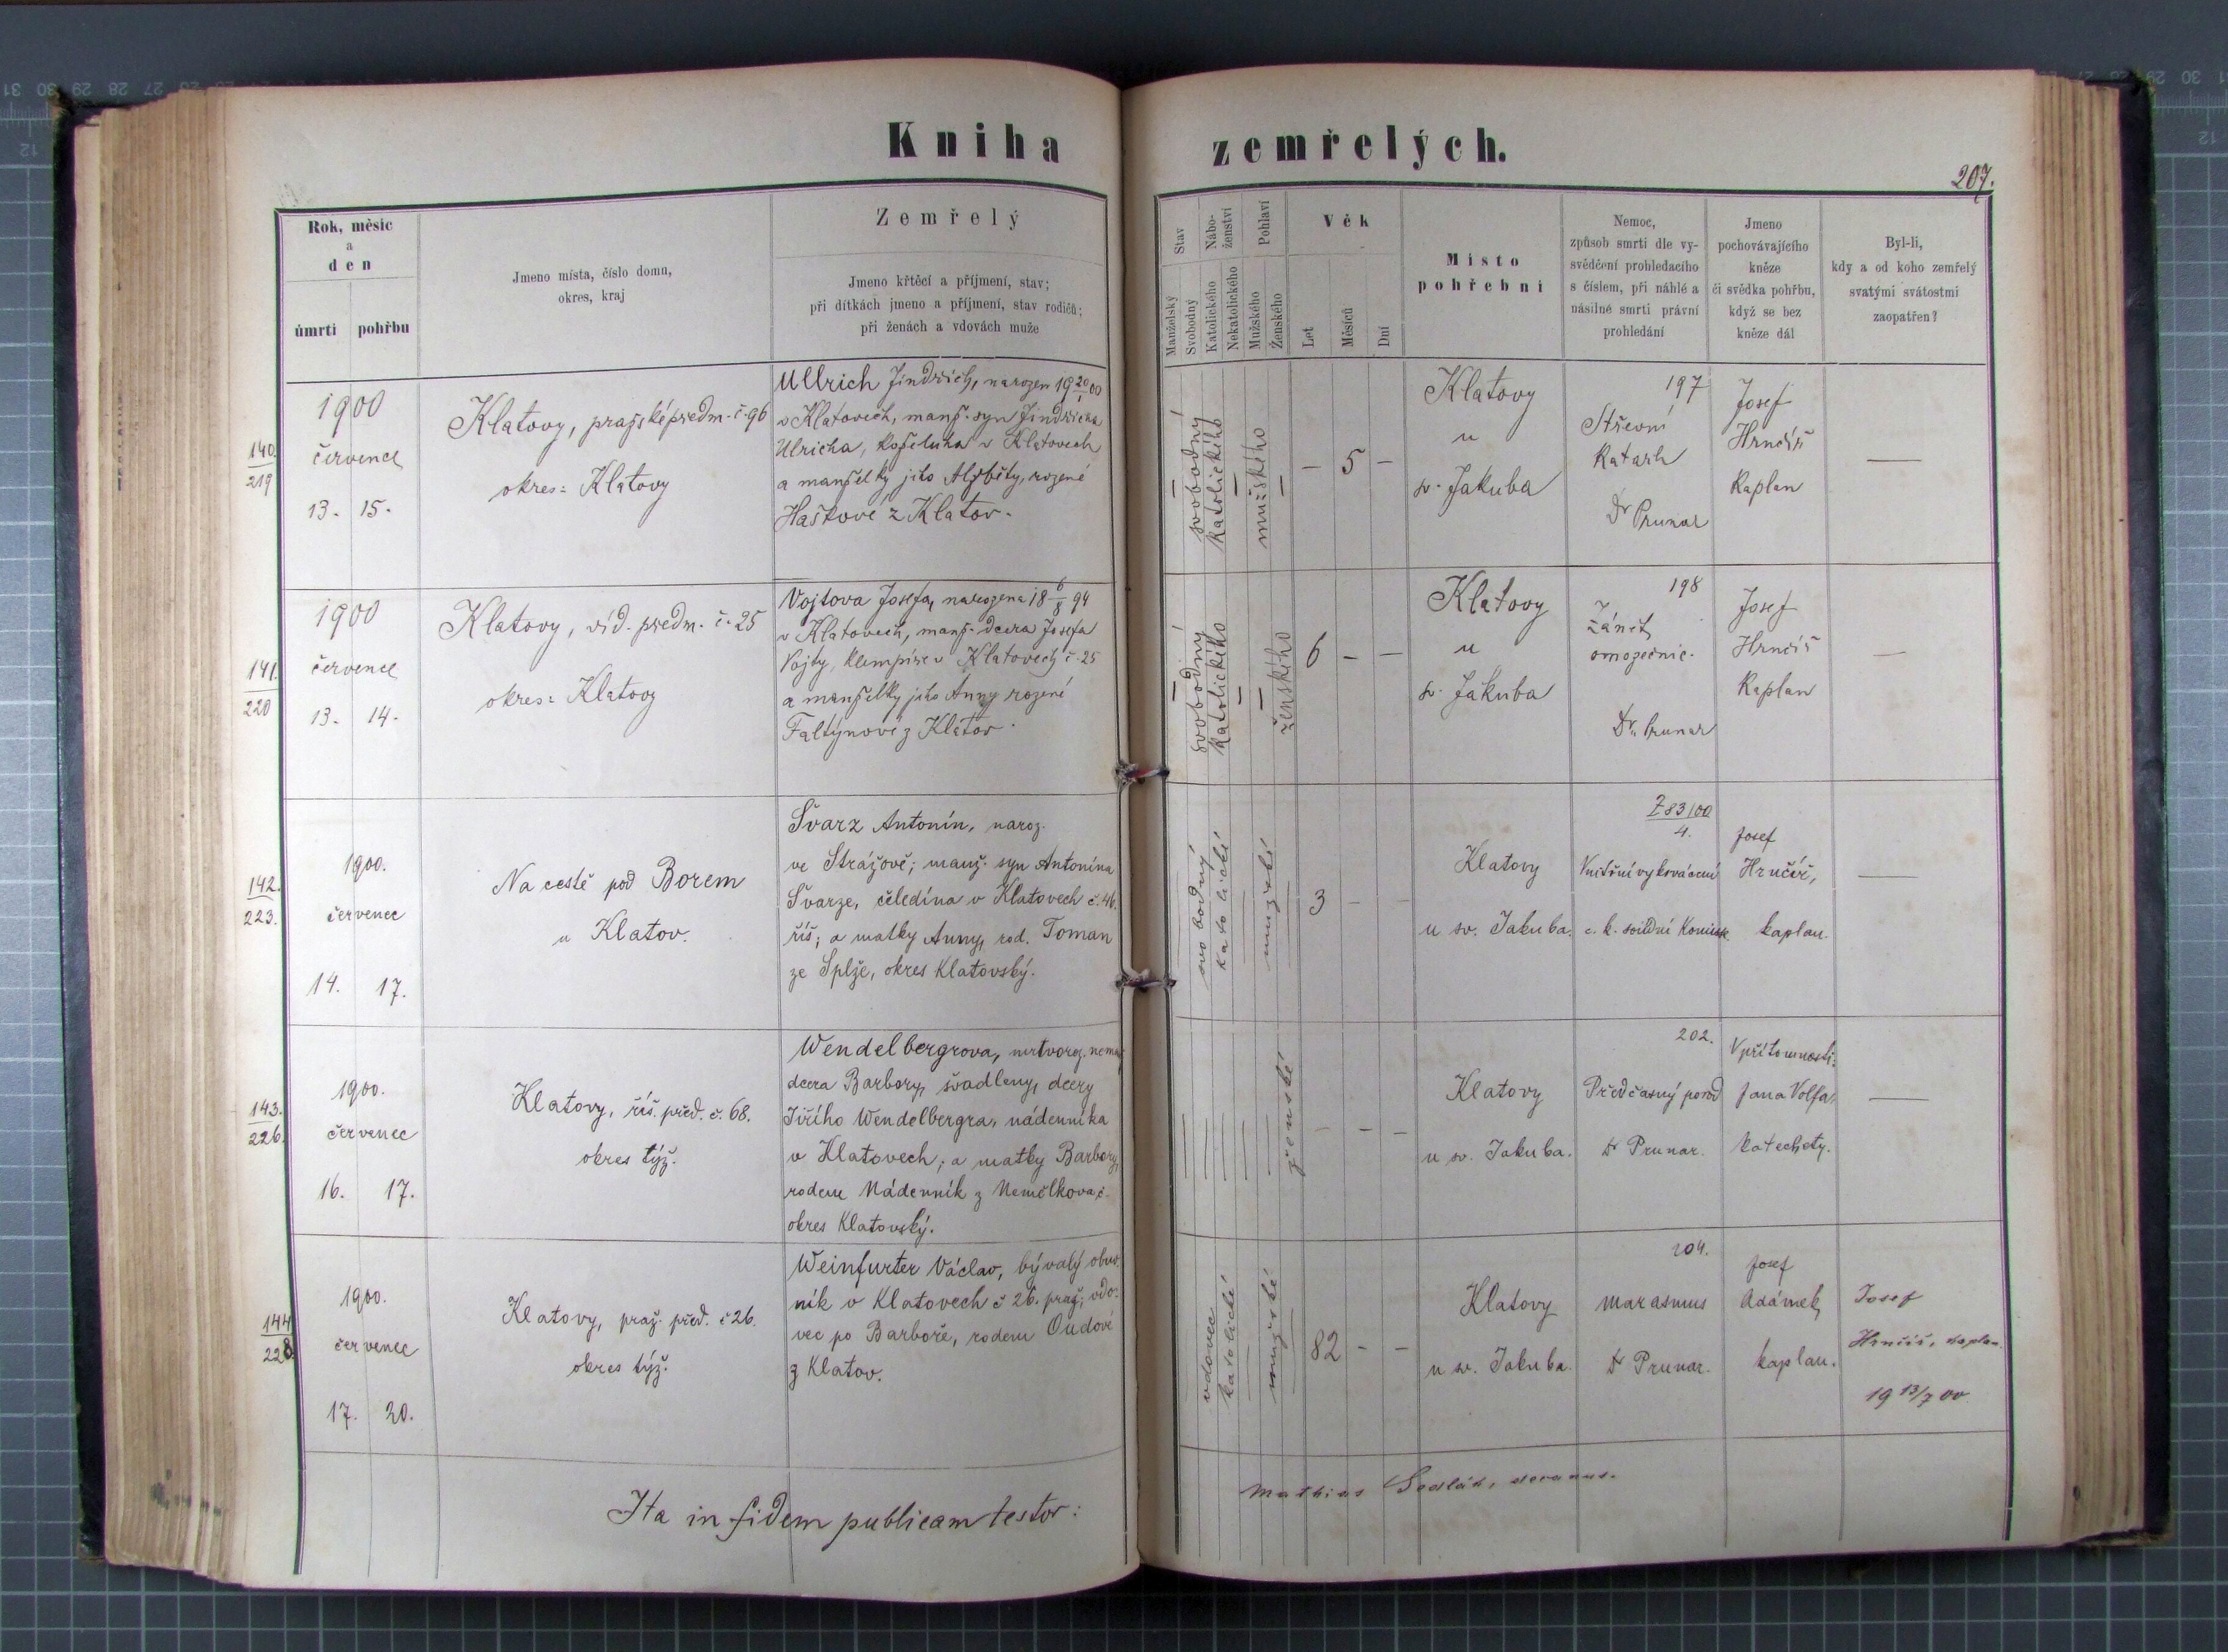 Kniha zemřelých.
207.
Rok, měsíc
a
den
úmrtí pohřbu
Jmeno místa, číslo domu,
okres, kraj
Zemřelý
Jmeno křtěcí a příjmení, stav;
při dítkách jmeno a příjmení, stav rodičů;
při ženách a vdovách muže
Stav
Manželský
Svobodný
Nábo-
ženství
Katolického
Nekatolického
Pohlaví
Mužského
Ženského
Věk
Let
Měsíců
Dní
Místo
pohřební
Nemoc,
způsob smrti dle vy-
svědčení prohledacího
s číslem, při náhlé a
násilné smrti právní
prohledání
Jmeno
pochovávajícího
kněze
či svědka pohřbu,
když se bez
kněze dál
Byl-li,
kdy a od koho zemřelý
svatými svátostmi
zaopatřen?
140.
219
1900
července
13. 15.
Klatovy, pražské předm. č. 96
okres: Klatovy
Ullrich Jindřich, narozen 19 20/1 00
v Klatovech, manž. syn Jindřicha
Ulricha, koželuha v Klatovech
a manželky jeho Alžběty, rozené
Haškové z Klatov.
— svobodný
katolického —
mužského —
— 5 —
Klatovy
u
sv. Jakuba
197
Střevní
Katarh
Dr Prunar
Josef
Hrnčíř
Kaplan
—
141.
220
1900
července
13. 14.
Klatovy, víd. předm. č. 25
okres: Klatovy
Vojtova Josefa, narozena 18 6/8 94
v Klatovech, manž. dcera Josefa
Vojty, klempíře v Klatovech č. 25
a manželky jeho Anny rozené
Faltýnové z Klatov.
— svobodný
katolického —
— ženského
6 — —
Klatovy
u
sv. Jakuba
198
Zánět
omozečnic.
Dr. Prunar
Josef
Hrnčíř
Kaplan
—
142.
223.
1900.
červenec
14. 17.
Na cestě pod Borem
u Klatov.
Švarz Antonín, naroz.
ve Strážově; manž. syn Antonína
Švarze, čeledína v Klatovech č. 46.
říš; a matky Anny, rod. Toman
ze Splže, okres Klatovský.
svobodný
katolické
mužské
3 — —
Klatovy
u sv. Jakuba.
Z 83/00
4.
Vnitřní vykrvácení
c. k. soudní Komise
Josef
Hrnčíř,
kaplan.
—
143.
226.
1900.
červenec
16. 17.
Klatovy, říš. před. č. 68.
okres týž.
Wendelbergrova, mrtvoroz. nemanž
dcera Barbory, švadleny, dcery
Jiřího Wendelbergra, nádenníka
v Klatovech; a matky Barbory,
rodem Nádenník z Nemělkova, č.
okres Klatovský.
ženské
— — —
Klatovy
u sv. Jakuba.
202.
Předčasný porod
Dr Prunar.
V přítomnosti:
Jana Volfa,
katechety.
—
144
228.
1900.
červenec
17. 20.
Klatovy, praž. před. č 26.
okres týž.
Weinfurter Václav, bývalý obuv
ník v Klatovech č 26. praž; vdo-
vec po Barboře, rodem Oudové
z Klatov.
vdovec
katolické
mužské
82 — —
Klatovy
u sv. Jakuba.
204.
Marasmus
Dr Prunar.
Josef
Adámek,
kaplan.
Josef
Hrnčíř, kaplan.
19 13/7 00
Ita in fidem publicam testor:
Mathias Sedlák, decanus.